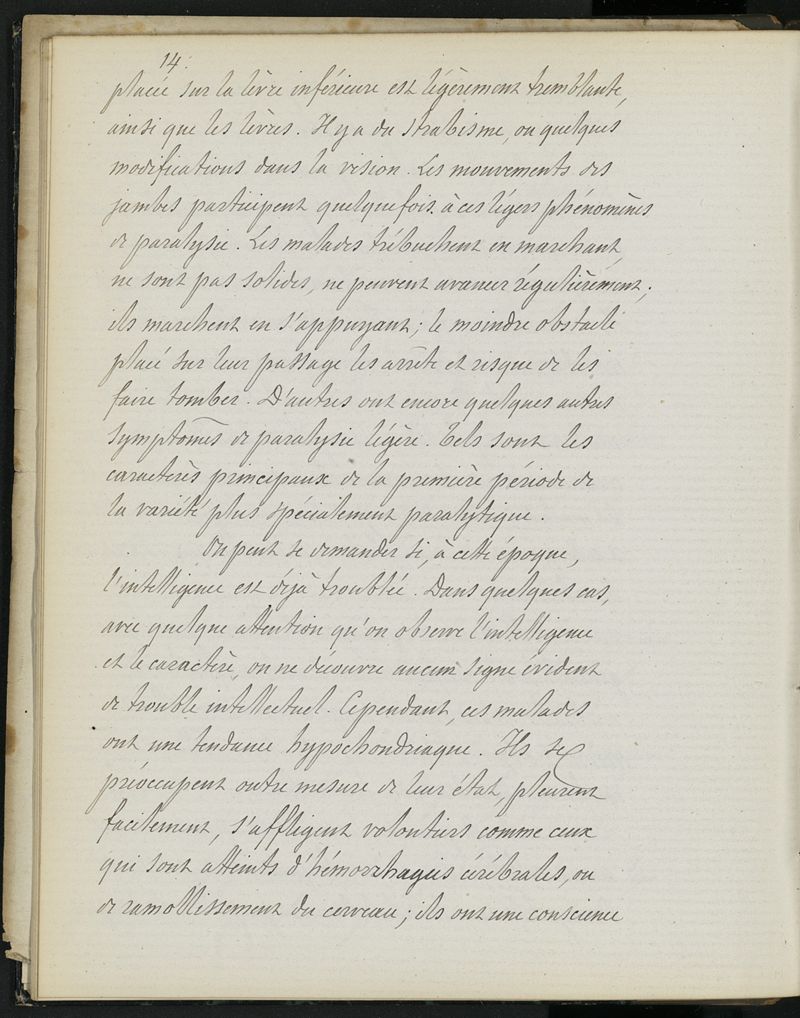 14.
placée sur la lèvre inférieure est légèrement tremblante,
ainsi que les lèvres. Il y a du strabisme, ou quelques
modifications dans la vision. Les mouvements des
jambes participent quelquefois à ces légers phénomènes
de paralysie. Les malades trébuchent en marchant,
ne sont pas solides, ne peuvent avancer régulièrement;
ils marchent en s'appuyant; le moindre obstacle
placé sur leur passage les arrête et risque de les
faire tomber. D'autres ont encore quelques autres
symptômes de paralysie légère. Tels sont les
caractères principaux de la première période de
la variété plus spécialement paralytique.
On peut se demander si, à cette époque,
l'intelligence est déjà troublée. Dans quelques cas,
avec quelque attention qu'on observe l'intelligence
et le caractère, on ne découvre aucun signe évident
de trouble intellectuel. Cependant, ces malades
ont une tendance hypochondriaque. Ils se
préoccupent outre mesure de leur état, pleurent
facilement, s'affligent volontiers comme ceux
qui sont atteints d'hémorrhagies cérébrales, ou
de ramollissement du cerveau; ils ont une conscience